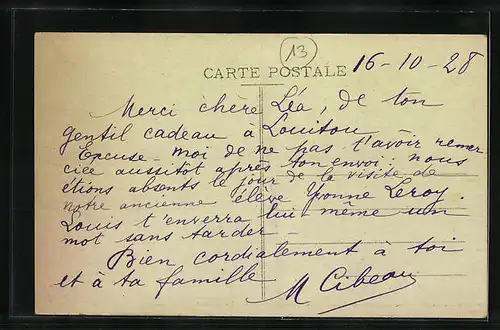 13
CARTE POSTALE
16-10-28
Merci chère Léa, de ton
gentil cadeau à Louitou
Excuse-moi de ne pas t'avoir remer
ciée aussitôt après ton envoi : nous
étions absents le jour de la visite de
notre ancienne élève Yvonne Leroy.
Louis t'enverra lui-même un
mot sans tarder -
Bien cordialement à toi
et à ta famille
M Cibeau